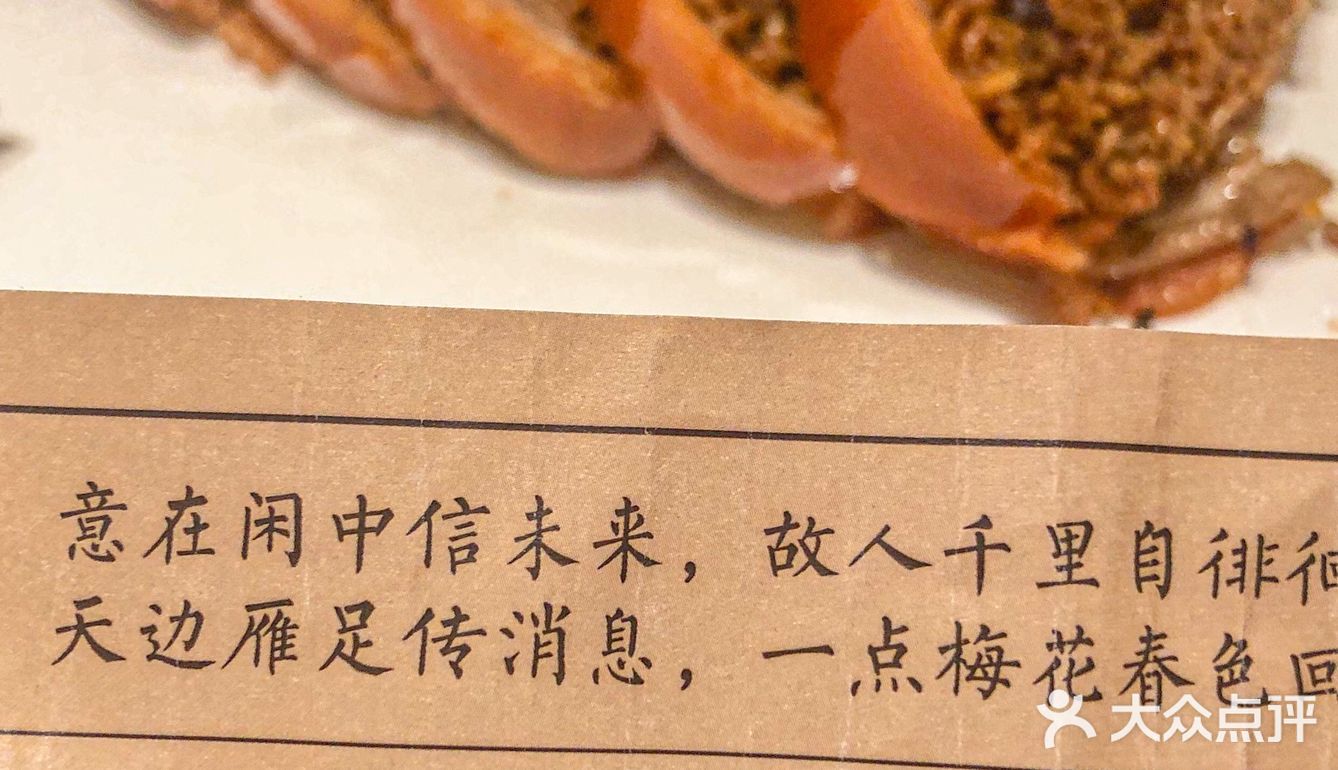 意在闲中信未来，故人千里自徘徊
天边雁足传消息，一点梅花春色回
大众点评